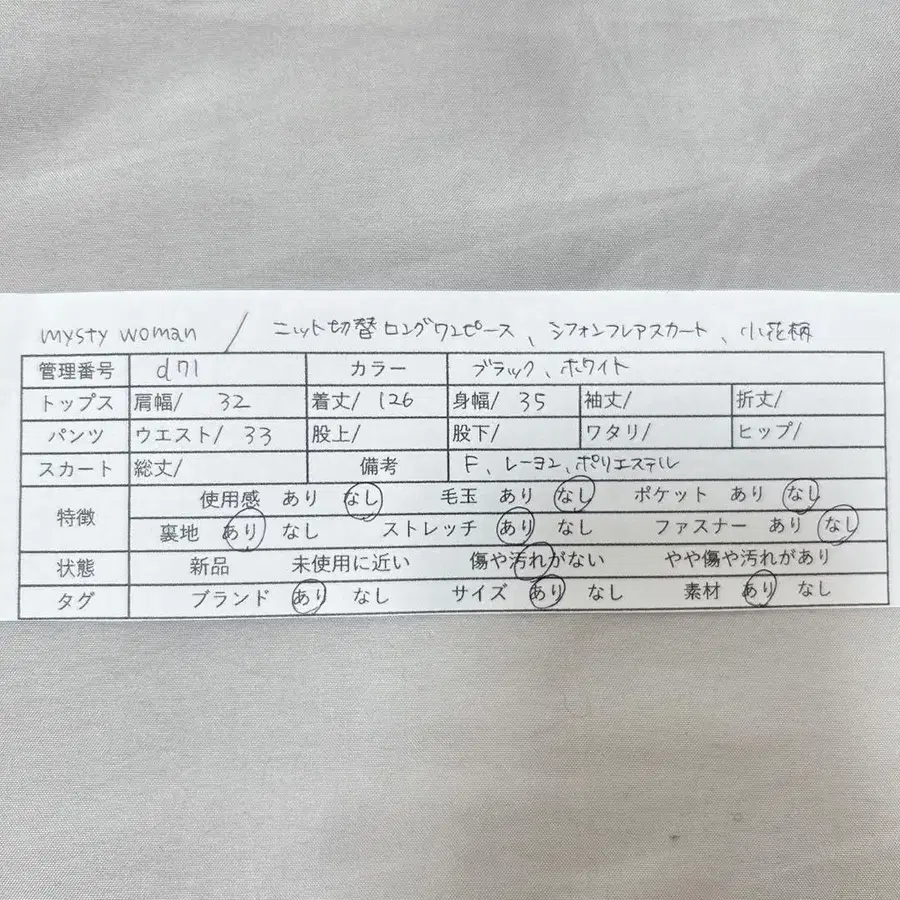 mysty woman / ニット切替ロングワンピース、シフォンフレアスカート、小花柄
管理番号 d71 カラー ブラック、ホワイト
トップス 肩幅/ 32 着丈/ 126 身幅/ 35 袖丈/ 裄丈/
パンツ ウエスト/ 33 股上/ 股下/ ワタリ/ ヒップ/
スカート 総丈/ 備考 F、レーヨン、ポリエステル
特徴 使用感 あり なし 毛玉 あり なし ポケット あり なし
裏地 あり なし ストレッチ あり なし ファスナー あり なし
状態 新品 未使用に近い 傷や汚れがない やや傷や汚れがあり
タグ ブランド あり なし サイズ あり なし 素材 あり なし